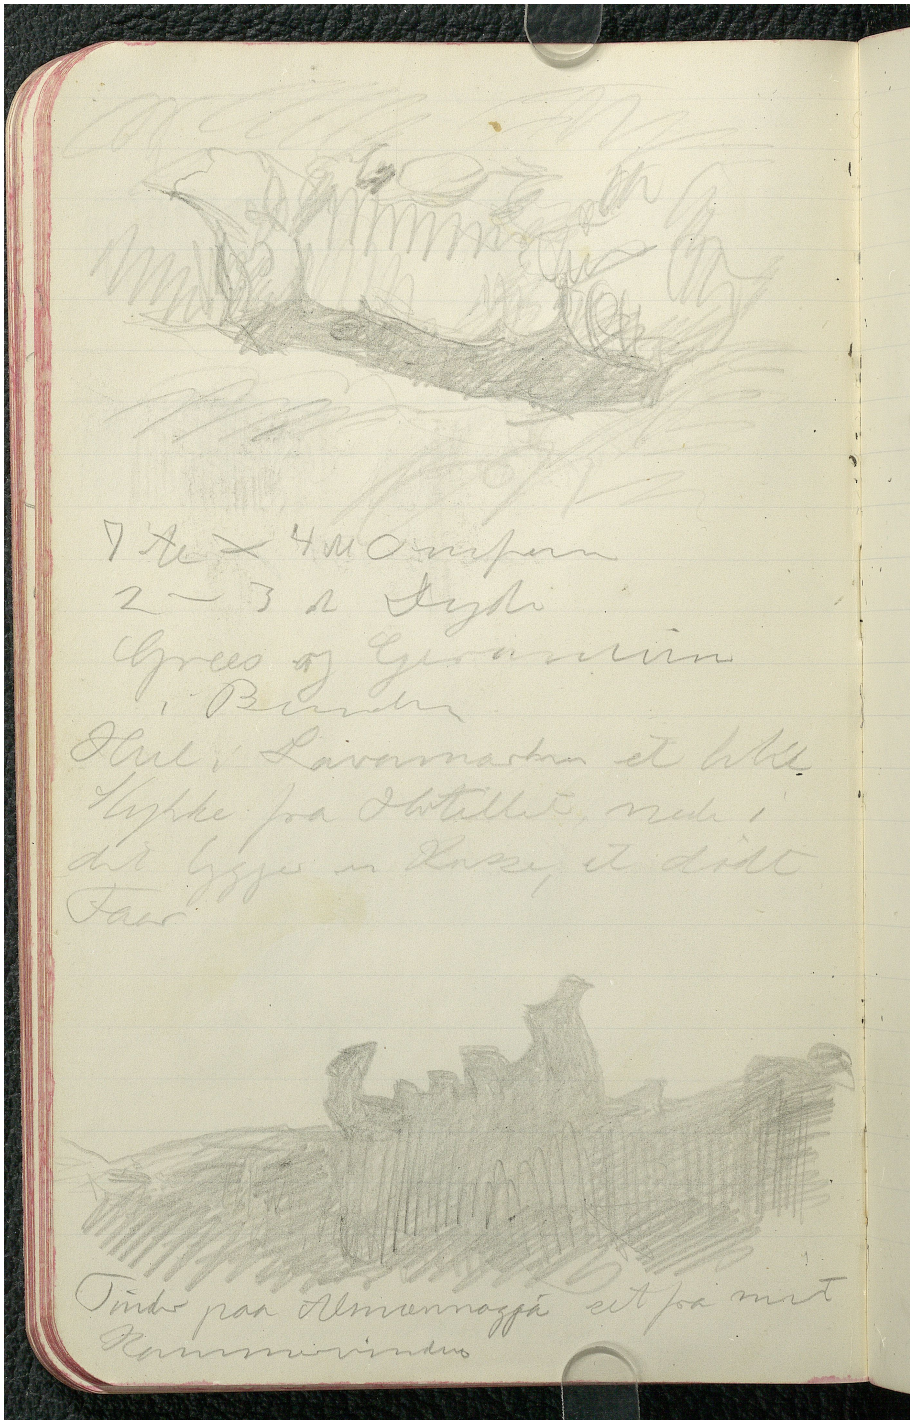 7 Al × 4 Al Omfern
2 – 3 Al Dybde
Græs og Geranium
i Bunden
Hul i Lavamarken et lille
Stykke fra Hotellet, nede i
det ligger en Kasse, et dødt
Faar
Tinder paa Almannagjá set fra mit
Kammervindue